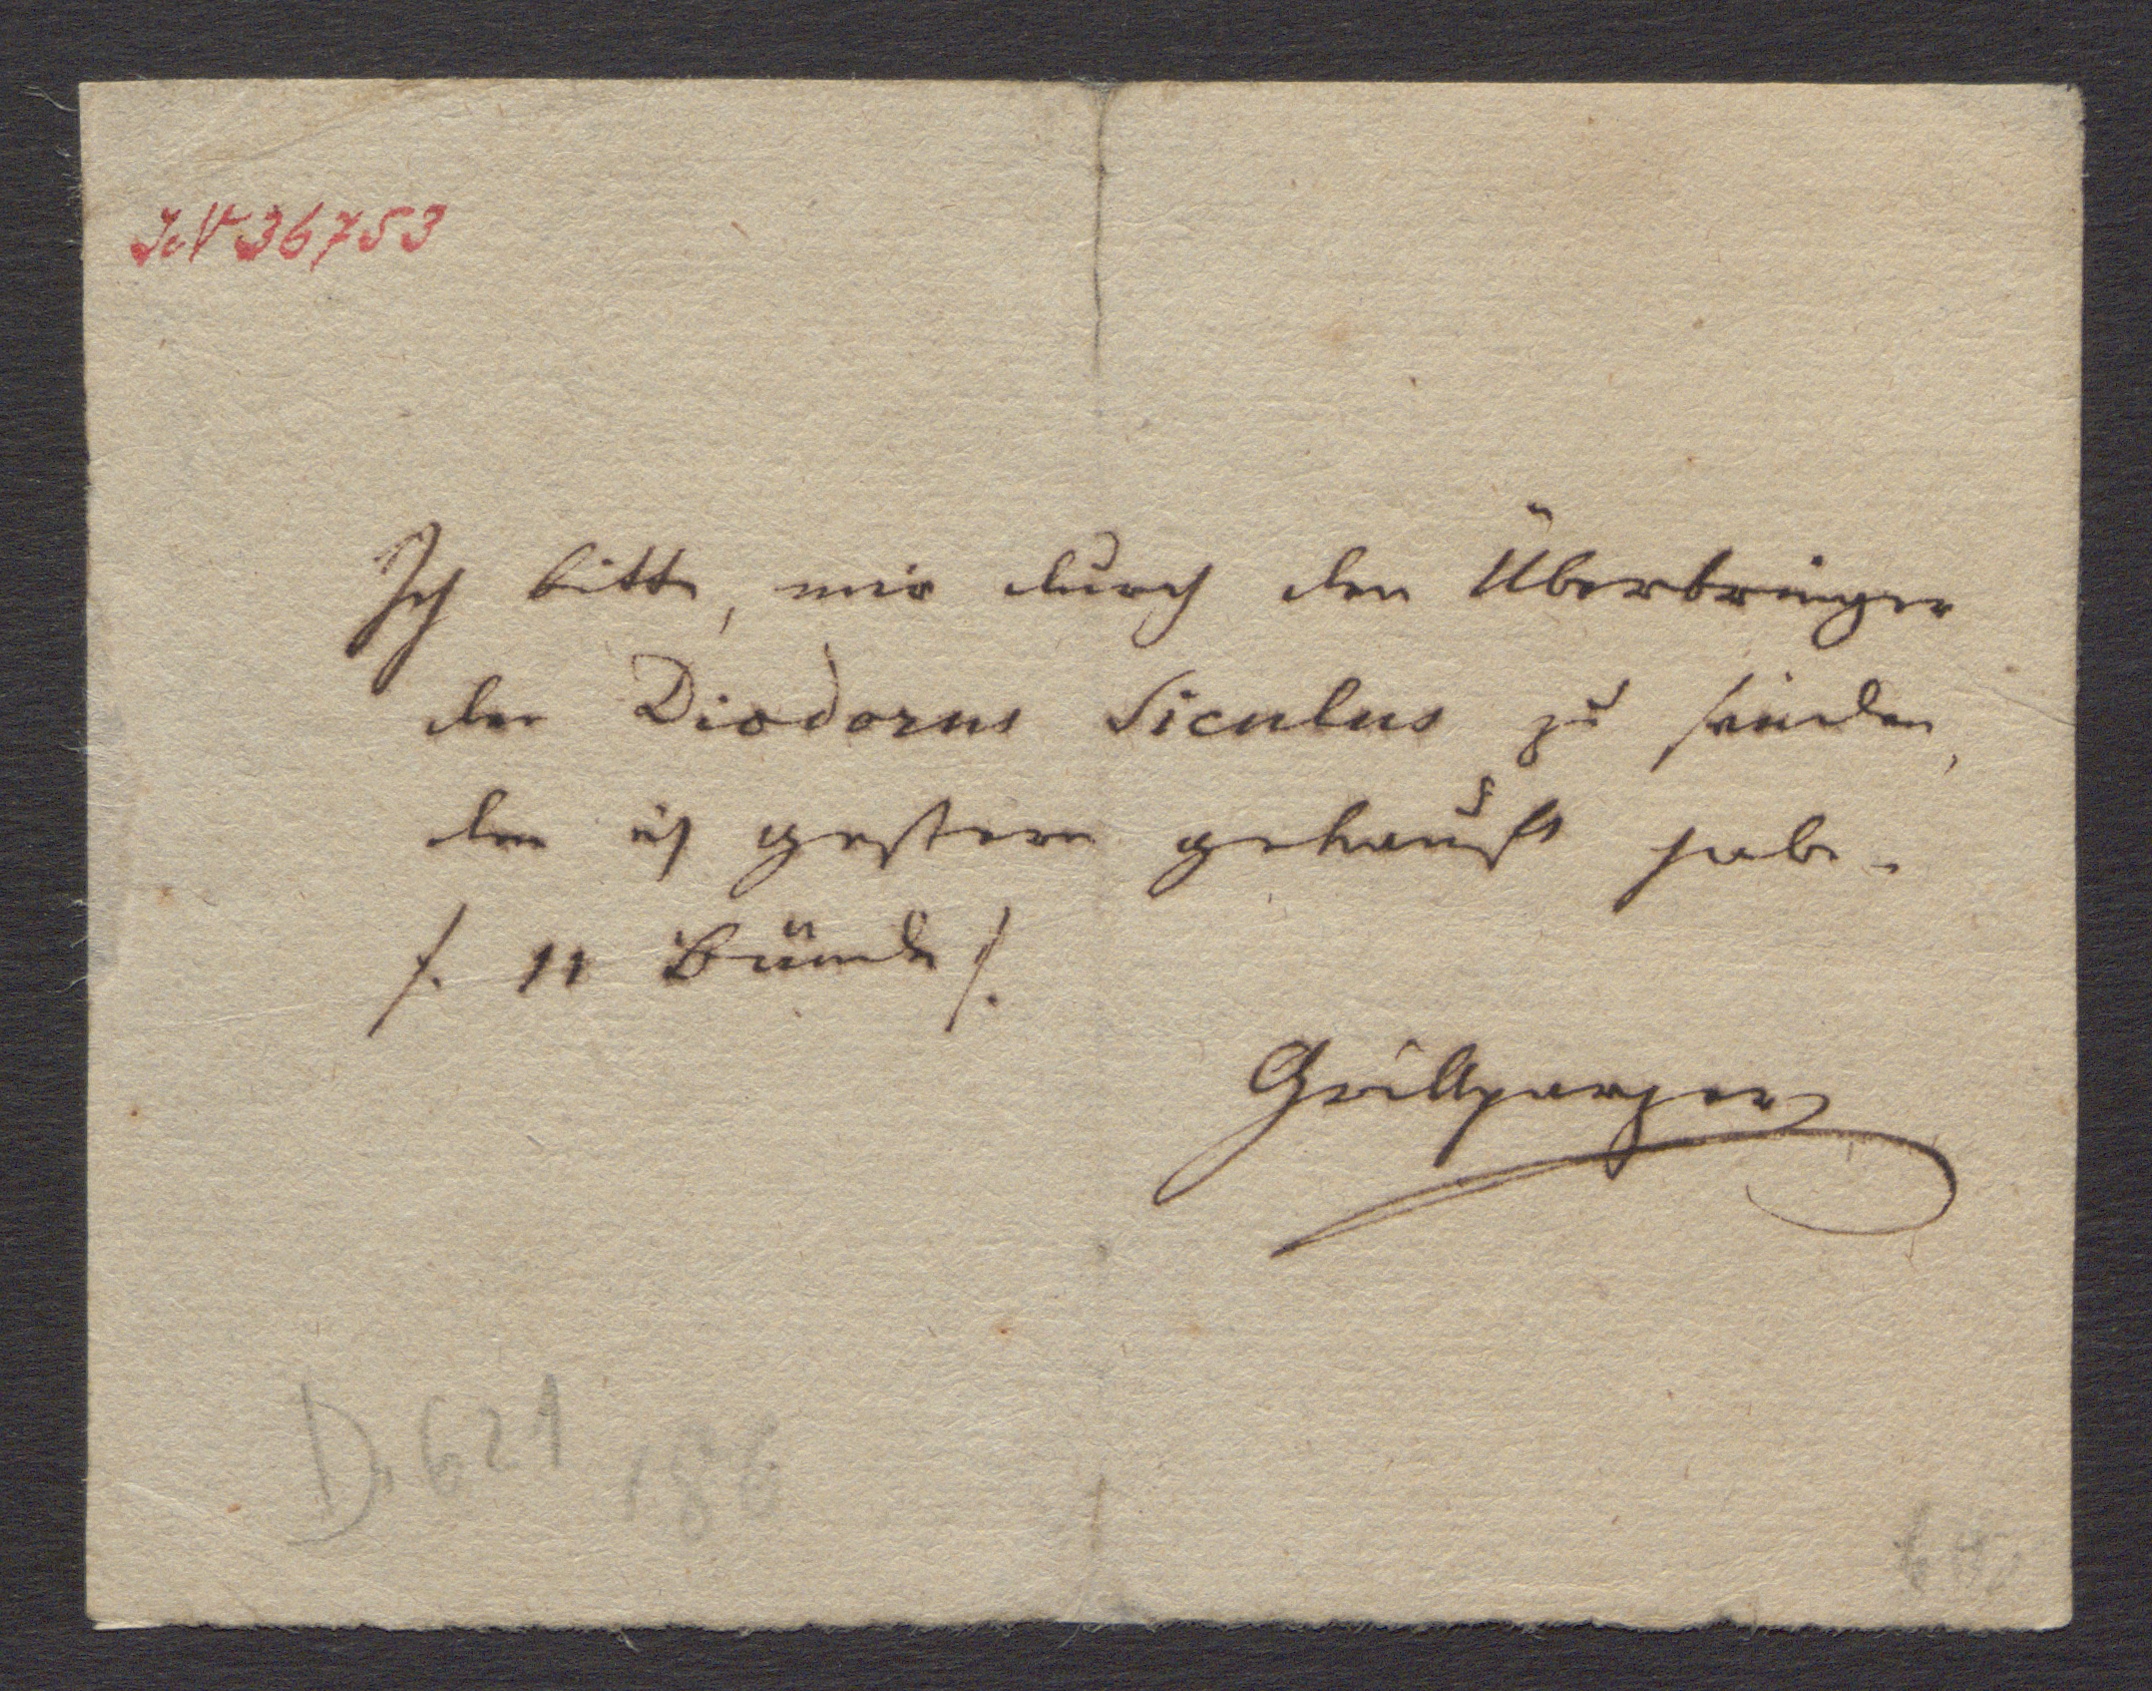 I.N 36753
Ich bitte, mir durch den Überbringer
den Diodorus Siculus zu senden,
den ich gestern gekauft habe.
/. 11 Bände /.
Grillparzer
D. 621 186